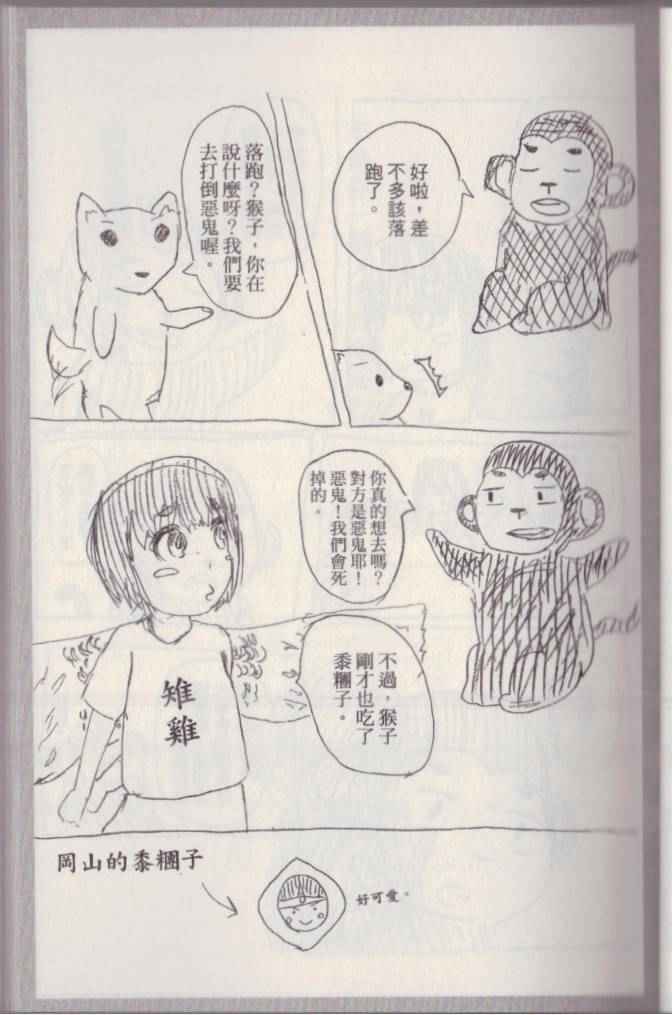 好啦，差
不多該落
跑了。
落跑？猴子，你在
說什麼呀？我們要
去打倒惡鬼喔。
你真的想去嗎？
對方是惡鬼耶！
惡鬼！我們會死
掉的。
不過，猴子
剛才也吃了
黍糰子。
雉雞
岡山的黍糰子
好可愛。